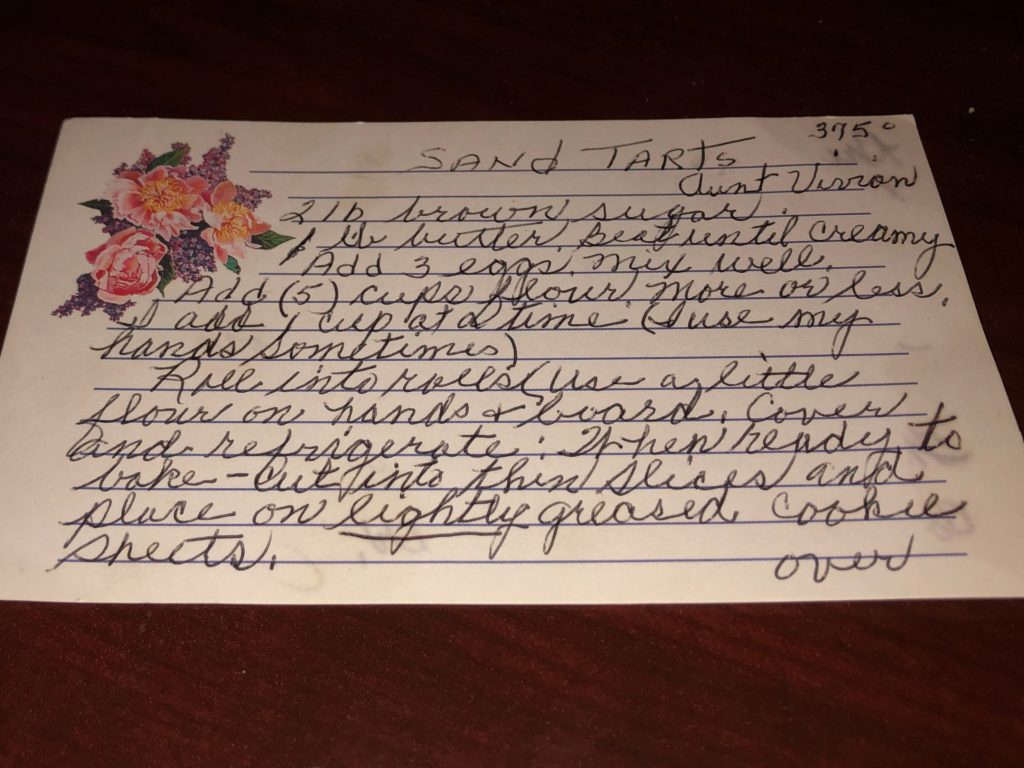 375°
SAND TARTS
Aunt Vivian
2 lb brown sugar.
1 lb butter. Beat until creamy
Add 3 eggs. Mix well.
Add (5) cups flour more or less.
I add 1 cup at a time (I use my
hands sometimes)
Roll into rolls (Use a little
flour on hands & board. Cover
and refrigerate. When ready to
bake - cut into thin slices and
place on lightly greased cookie
sheets.
over